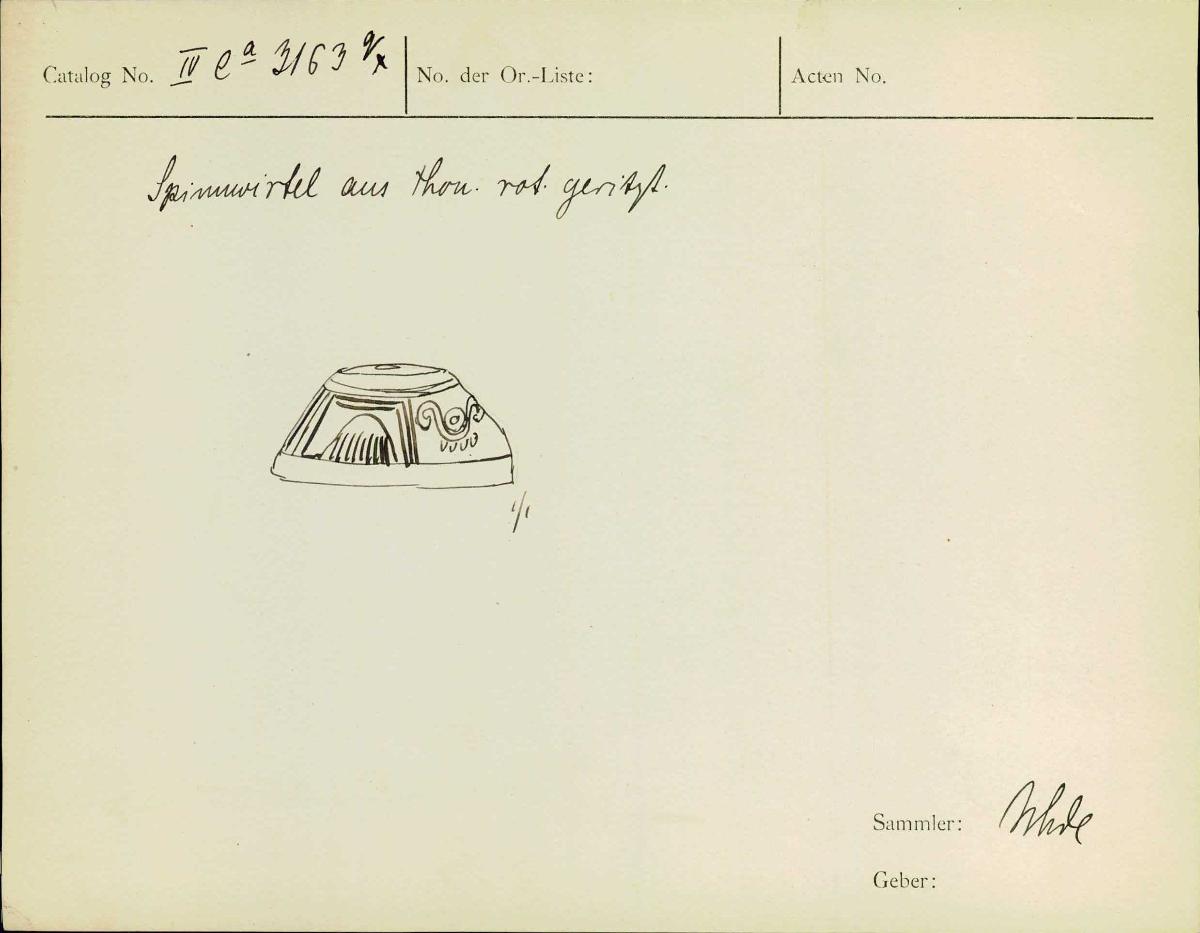 Catalog No. IV Ca 3163
No. der Or.-Liste:
Acten No.
Spinnwirtel aus Thon. rot. geritzt.
1/1
Sammler: Uhde
Geber: